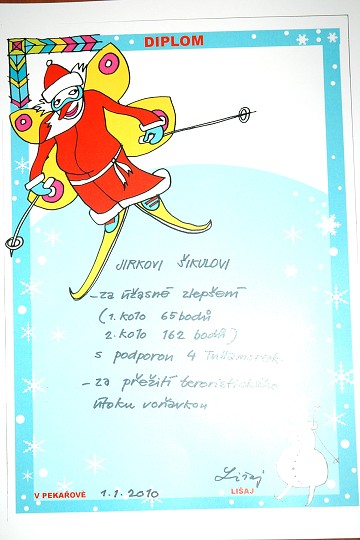 DIPLOM
JIRKOVI ŠIKULOVI
- za úžasné zlepšení
(1. kolo 65 bodů
2. kolo 162 bodů)
s podporou 4
- za přežití teroristického
útoku voňavkou
Lišaj
V PEKAŘOVĚ 1.1.2010 LIŠAJ